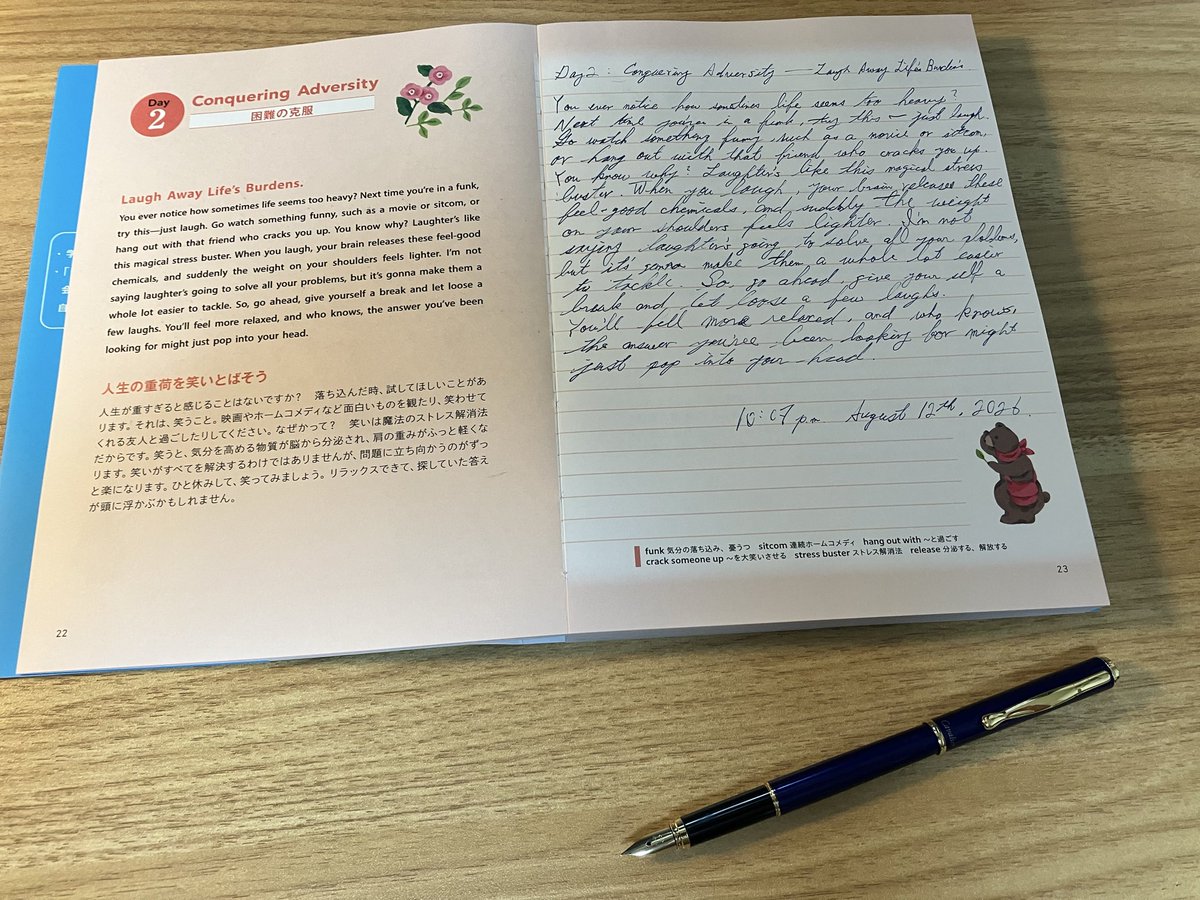 Day
2
Conquering Adversity
困難の克服
Laugh Away Life's Burdens.
You ever notice how sometimes life seems too heavy? Next time you're in a funk,
try this—just laugh. Go watch something funny, such as a movie or sitcom, or
hang out with that friend who cracks you up. You know why? Laughter's like
this magical stress buster. When you laugh, your brain releases these feel-good
chemicals, and suddenly the weight on your shoulders feels lighter. I'm not
saying laughter's going to solve all your problems, but it's gonna make them a
whole lot easier to tackle. So, go ahead, give yourself a break and let loose a
few laughs. You'll feel more relaxed, and who knows, the answer you've been
looking for might just pop into your head.
人生の重荷を笑いとばそう
人生が重すぎると感じることはないですか？　落ち込んだ時、試してほしいことがあ
ります。それは、笑うこと。映画やホームコメディなど面白いものを観たり、笑わせて
くれる友人と過ごしたりしてください。なぜかって？　笑いは魔法のストレス解消法
だからです。笑うと、気分を高める物質が脳から分泌され、肩の重みがふっと軽くな
ります。笑いがすべてを解決するわけではありませんが、問題に立ち向かうのがずっ
と楽になります。ひと休みして、笑ってみましょう。リラックスできて、探していた答え
が頭に浮かぶかもしれません。
22
Day 2 : Conquering Adversity — Laugh Away Life's Burdens
You ever notice how sometimes life seems too heavy?
Next time you're in a funk, try this — just laugh.
Go watch something funny such as a movie or sitcom,
or hang out with that friend who cracks you up.
You know why? Laughter's like this magical stress
buster. When you laugh, your brain releases these
feel-good chemicals, and suddenly the weight
on your shoulders feels lighter. I'm not
saying laughter's going to solve all your problems,
but it's gonna make them a whole lot easier
to tackle. So, go ahead give your self a
break and let loose a few laughs.
You'll fell more relaxed, and who knows,
the answer you've been looking for might
just pop into your head.
10:07 p.m. August 12th, 2026.
funk 気分の落ち込み、憂うつ　sitcom 連続ホームコメディ　hang out with ～と過ごす
crack someone up ～を大笑いさせる　stress buster ストレス解消法　release 分泌する、解放する
23